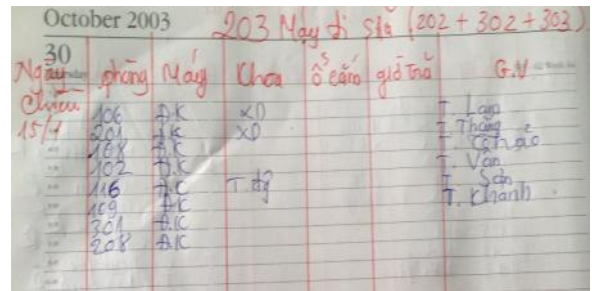 October 2003 203 Máy đi sửa (202 + 302 + 303)
30
Ngày phòng Máy Khoa ổ cắm giờ trả G.V
Chiều
15/7 106 ĐK XD T. Lam
201 ĐK XD T. Thắng
108 ĐK T.
102 ĐK T. Vân
116 ĐK T. Sơn
109 ĐK T. Khanh
301 ĐK
208 ĐK